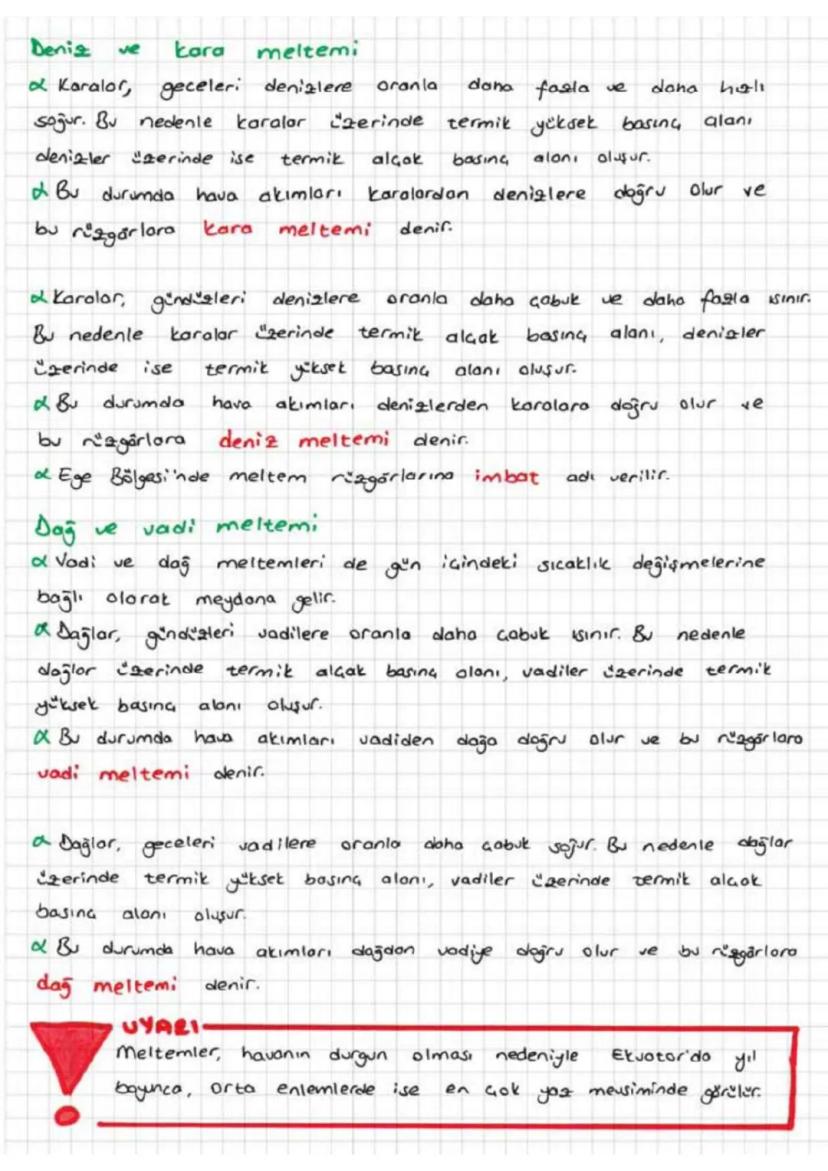 Deniz ve kara meltemi
α Karalar, geceleri denizlere oranla daha fazla ve daha hızlı
soğur. Bu nedenle karalar üzerinde termik yüksek basınç alanı
denizler üzerinde ise termik alçak basınç alanı oluşur.
α Bu durumda hava akımları karalardan denizlere doğru olur ve
bu rüzgârlara kara meltemi denir.
α Karalar, gündüzleri denizlere oranla daha çabuk ve daha fazla ısınır.
Bu nedenle karalar üzerinde termik alçak basınç alanı, denizler
üzerinde ise termik yüksek basınç alanı oluşur.
α Bu durumda hava akımları denizlerden karalara doğru olur ve
bu rüzgârlara deniz meltemi denir.
α Ege Bölgesi'nde meltem rüzgârlarına imbat adı verilir.
Dağ ve vadi meltemi
α Vadi ve dağ meltemleri de gün içindeki sıcaklık değişmelerine
bağlı olarak meydana gelir.
α Dağlar, gündüzleri vadilere oranla daha çabuk ısınır. Bu nedenle
dağlar üzerinde termik alçak basınç alanı, vadiler üzerinde termik
yüksek basınç alanı oluşur.
α Bu durumda hava akımları vadiden dağa doğru olur ve bu rüzgârlara
vadi meltemi denir.
α Dağlar, geceleri vadilere oranla daha çabuk soğur. Bu nedenle dağlar
üzerinde termik yüksek basınç alanı, vadiler üzerinde termik alçak
basınç alanı oluşur.
α Bu durumda hava akımları dağdan vadiye doğru olur ve bu rüzgârlara
dağ meltemi denir.
UYARI
Meltemler, havanın durgun olması nedeniyle Ekvator'da yıl
boyunca, orta enlemlerde ise en çok yaz mevsiminde görülür.